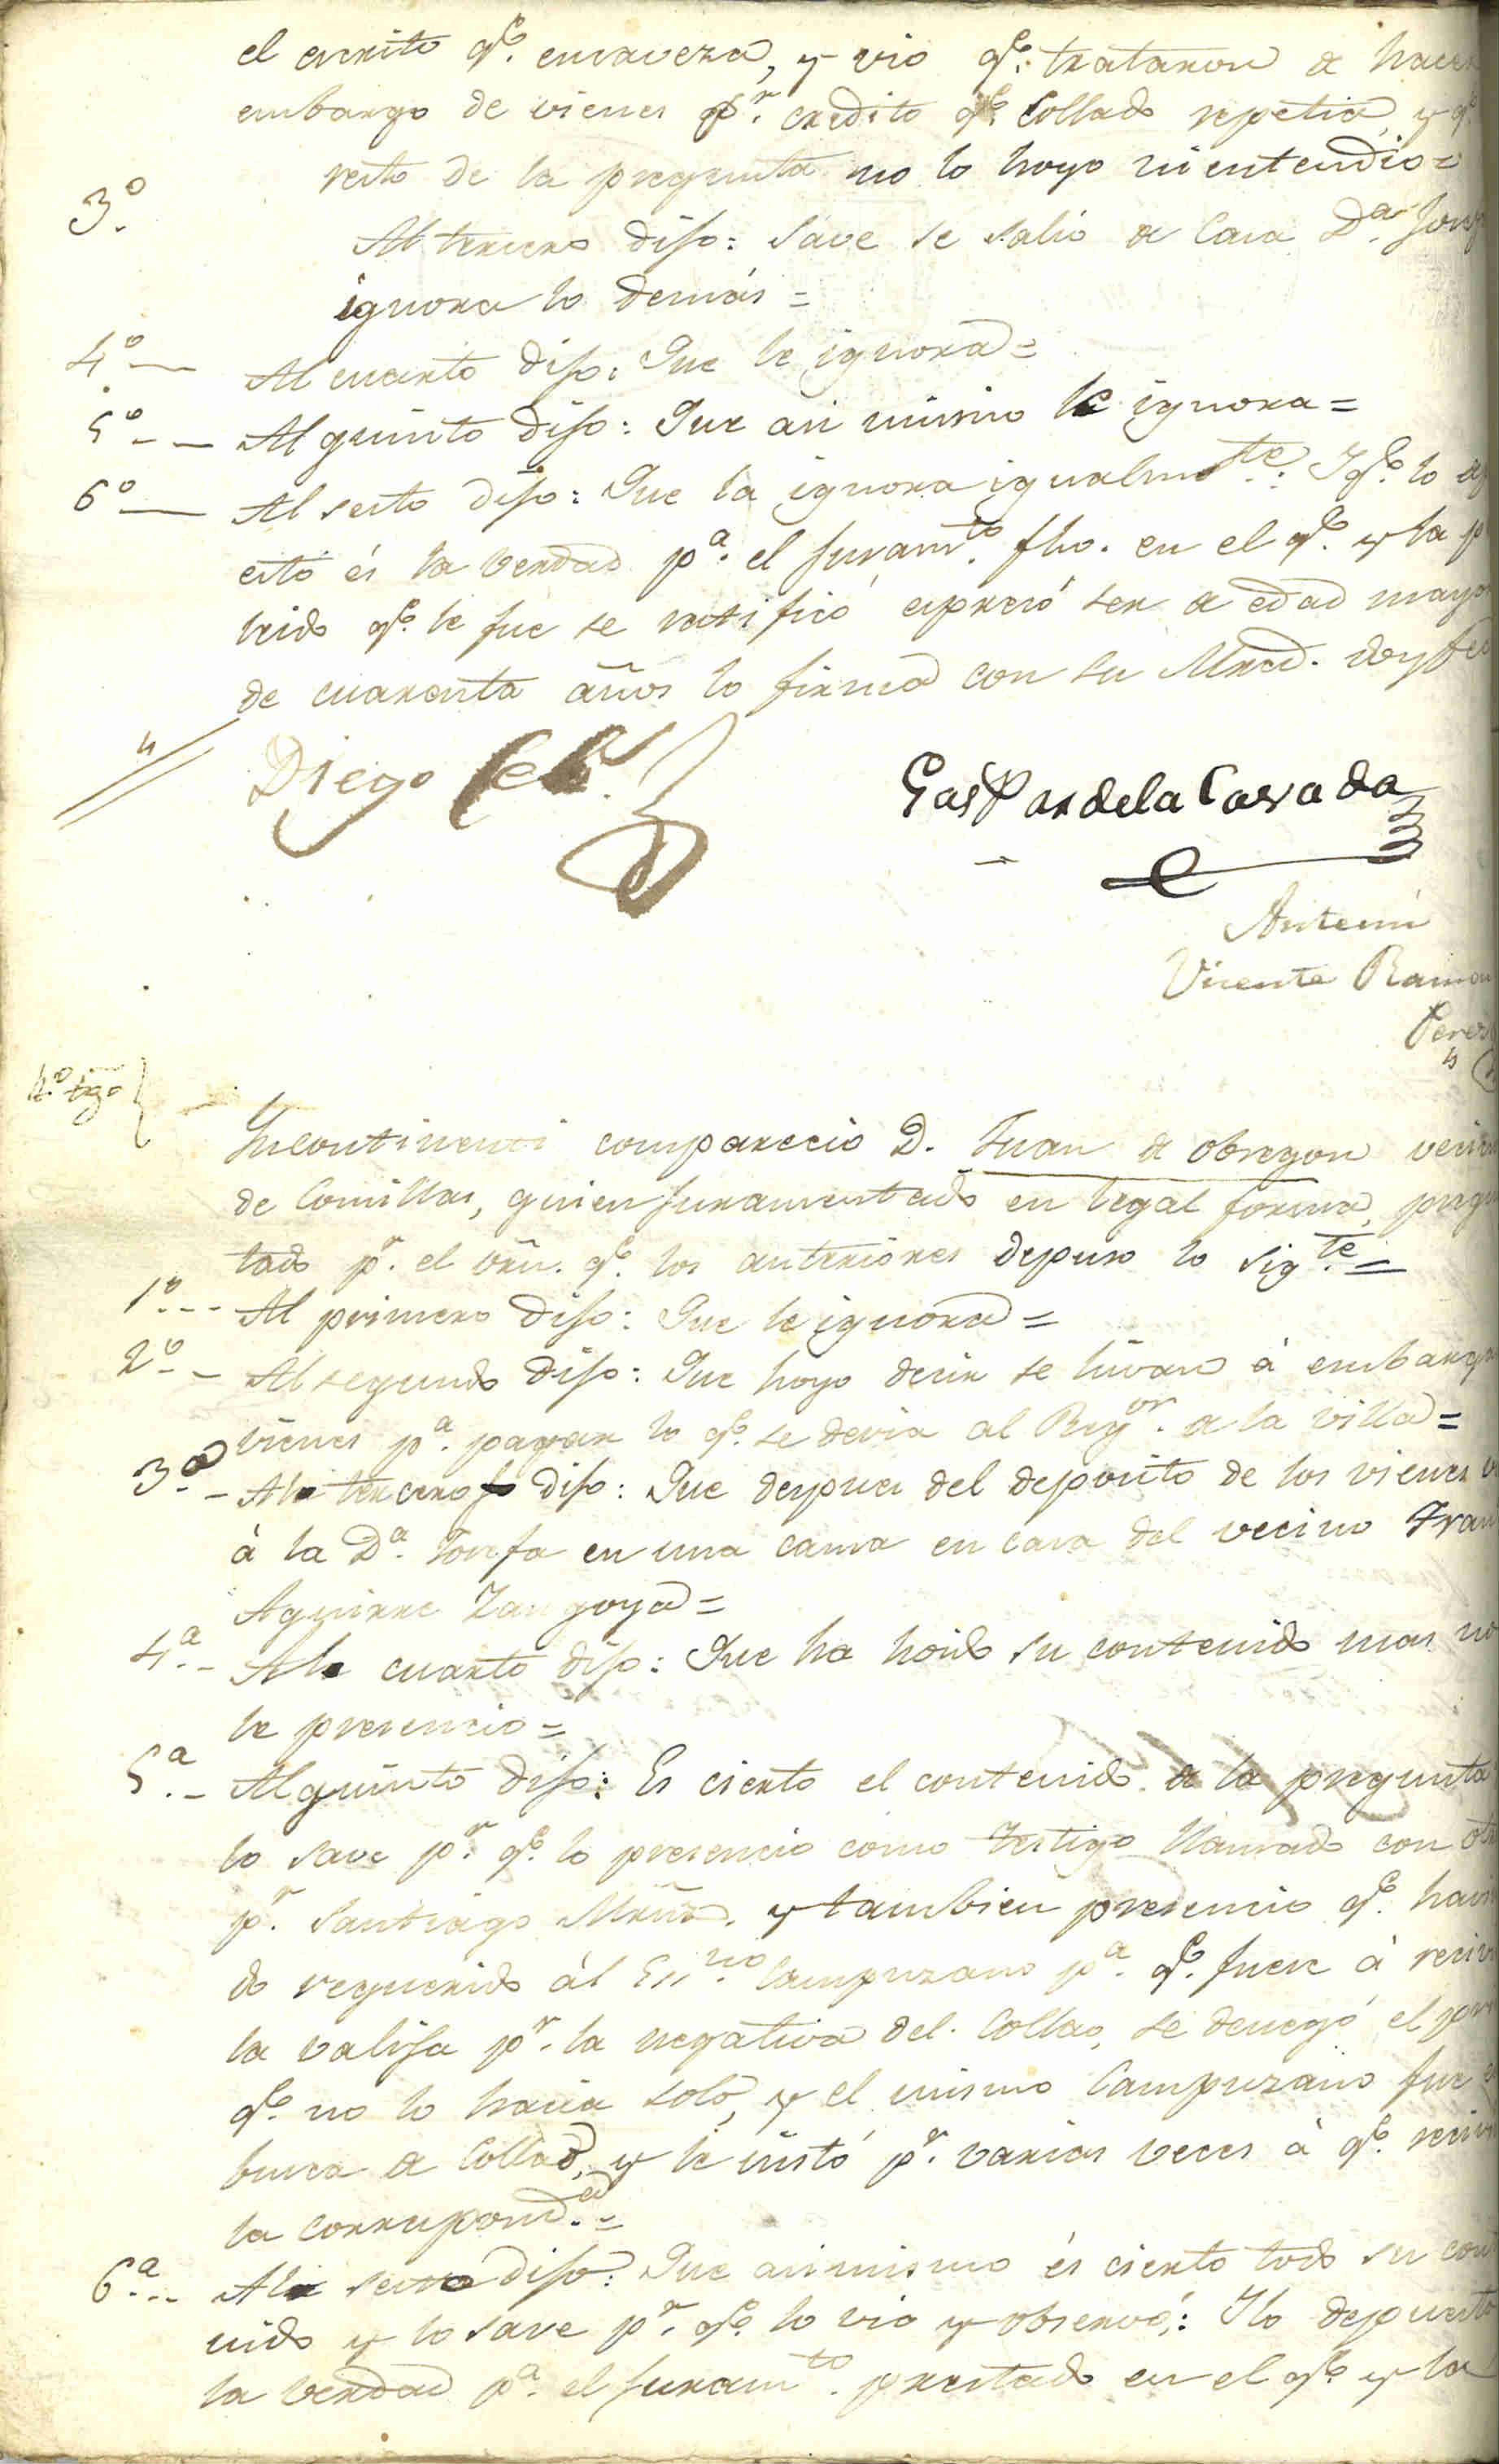 el escrito q.e encaveza, y vio q.e trataron de hacer
embargo de vienes p.r credito q.e Collado repetia, y q.e
resto de la pregunta no lo hoyo ni entendio=
3.º Al tercero dijo: Save se salio de Casa D.a
ignora lo demás=
4.º — Al cuarto dijo: Que le ignora=
5.º - — Al quinto dijo: Que asi mismo le ignora=
6.º — Al sesto dijo: Que la ignora igualm.te: Y q.e lo
esto és la verdad p.a el juram.to fho. en el q.e y la
leido q.e le fue se ratificó espresó ser de edad mayor
de cuarenta años lo firma con su Mrcd. doy fee
Diego
Gaspar de la Casada
Antemi
Vicente Ramon
Perez
4.º tgo
Incontinenti comparecio D. Juan de Obregon vecino
de Comillas, quien juramentado en legal forma, pregun
tado p.r el orn. q.e los anteriores depuso lo sig.te=
1.º -- Al primero dijo: Que le ignora=
2.º - Al segundo dijo: Que hoyo decir se hivan á embargar
vienes p.a pagar lo q.e se devia al Reg.or de la villa=
3.º - Al tercero dijo: Que despues del deposito de los vienes
á la D.a Josefa en una cama en casa del vecino Fran
Aguirre Zangoya=
4.a - Al cuarto dijo: Que ha hoido su contenido mas no
le presencio=
5.a - Al quinto dijo: Es cierto el contenido de la pregunta
lo save p.r q.e lo presencio como testigo llamado con otro
p.r Santiago y tambien presencio q.e havien
do requerido ál Ess.no Campuzano p.a q.e fuese á reciv
la valija p.r la negativa del Collao, se denegó el
q.e no lo hacia solo, y el mismo Campuzano fue
busca de Collado, y le instó p.r varias veces á q.e
la correspond.a=
6.a -- Al sesto dijo: Que asimismo és cierto todo su conte
nido y lo save p.r q.e lo vio y observó: Y lo depuesto
la verdad p.a el juram.to prestado en el q.e y la